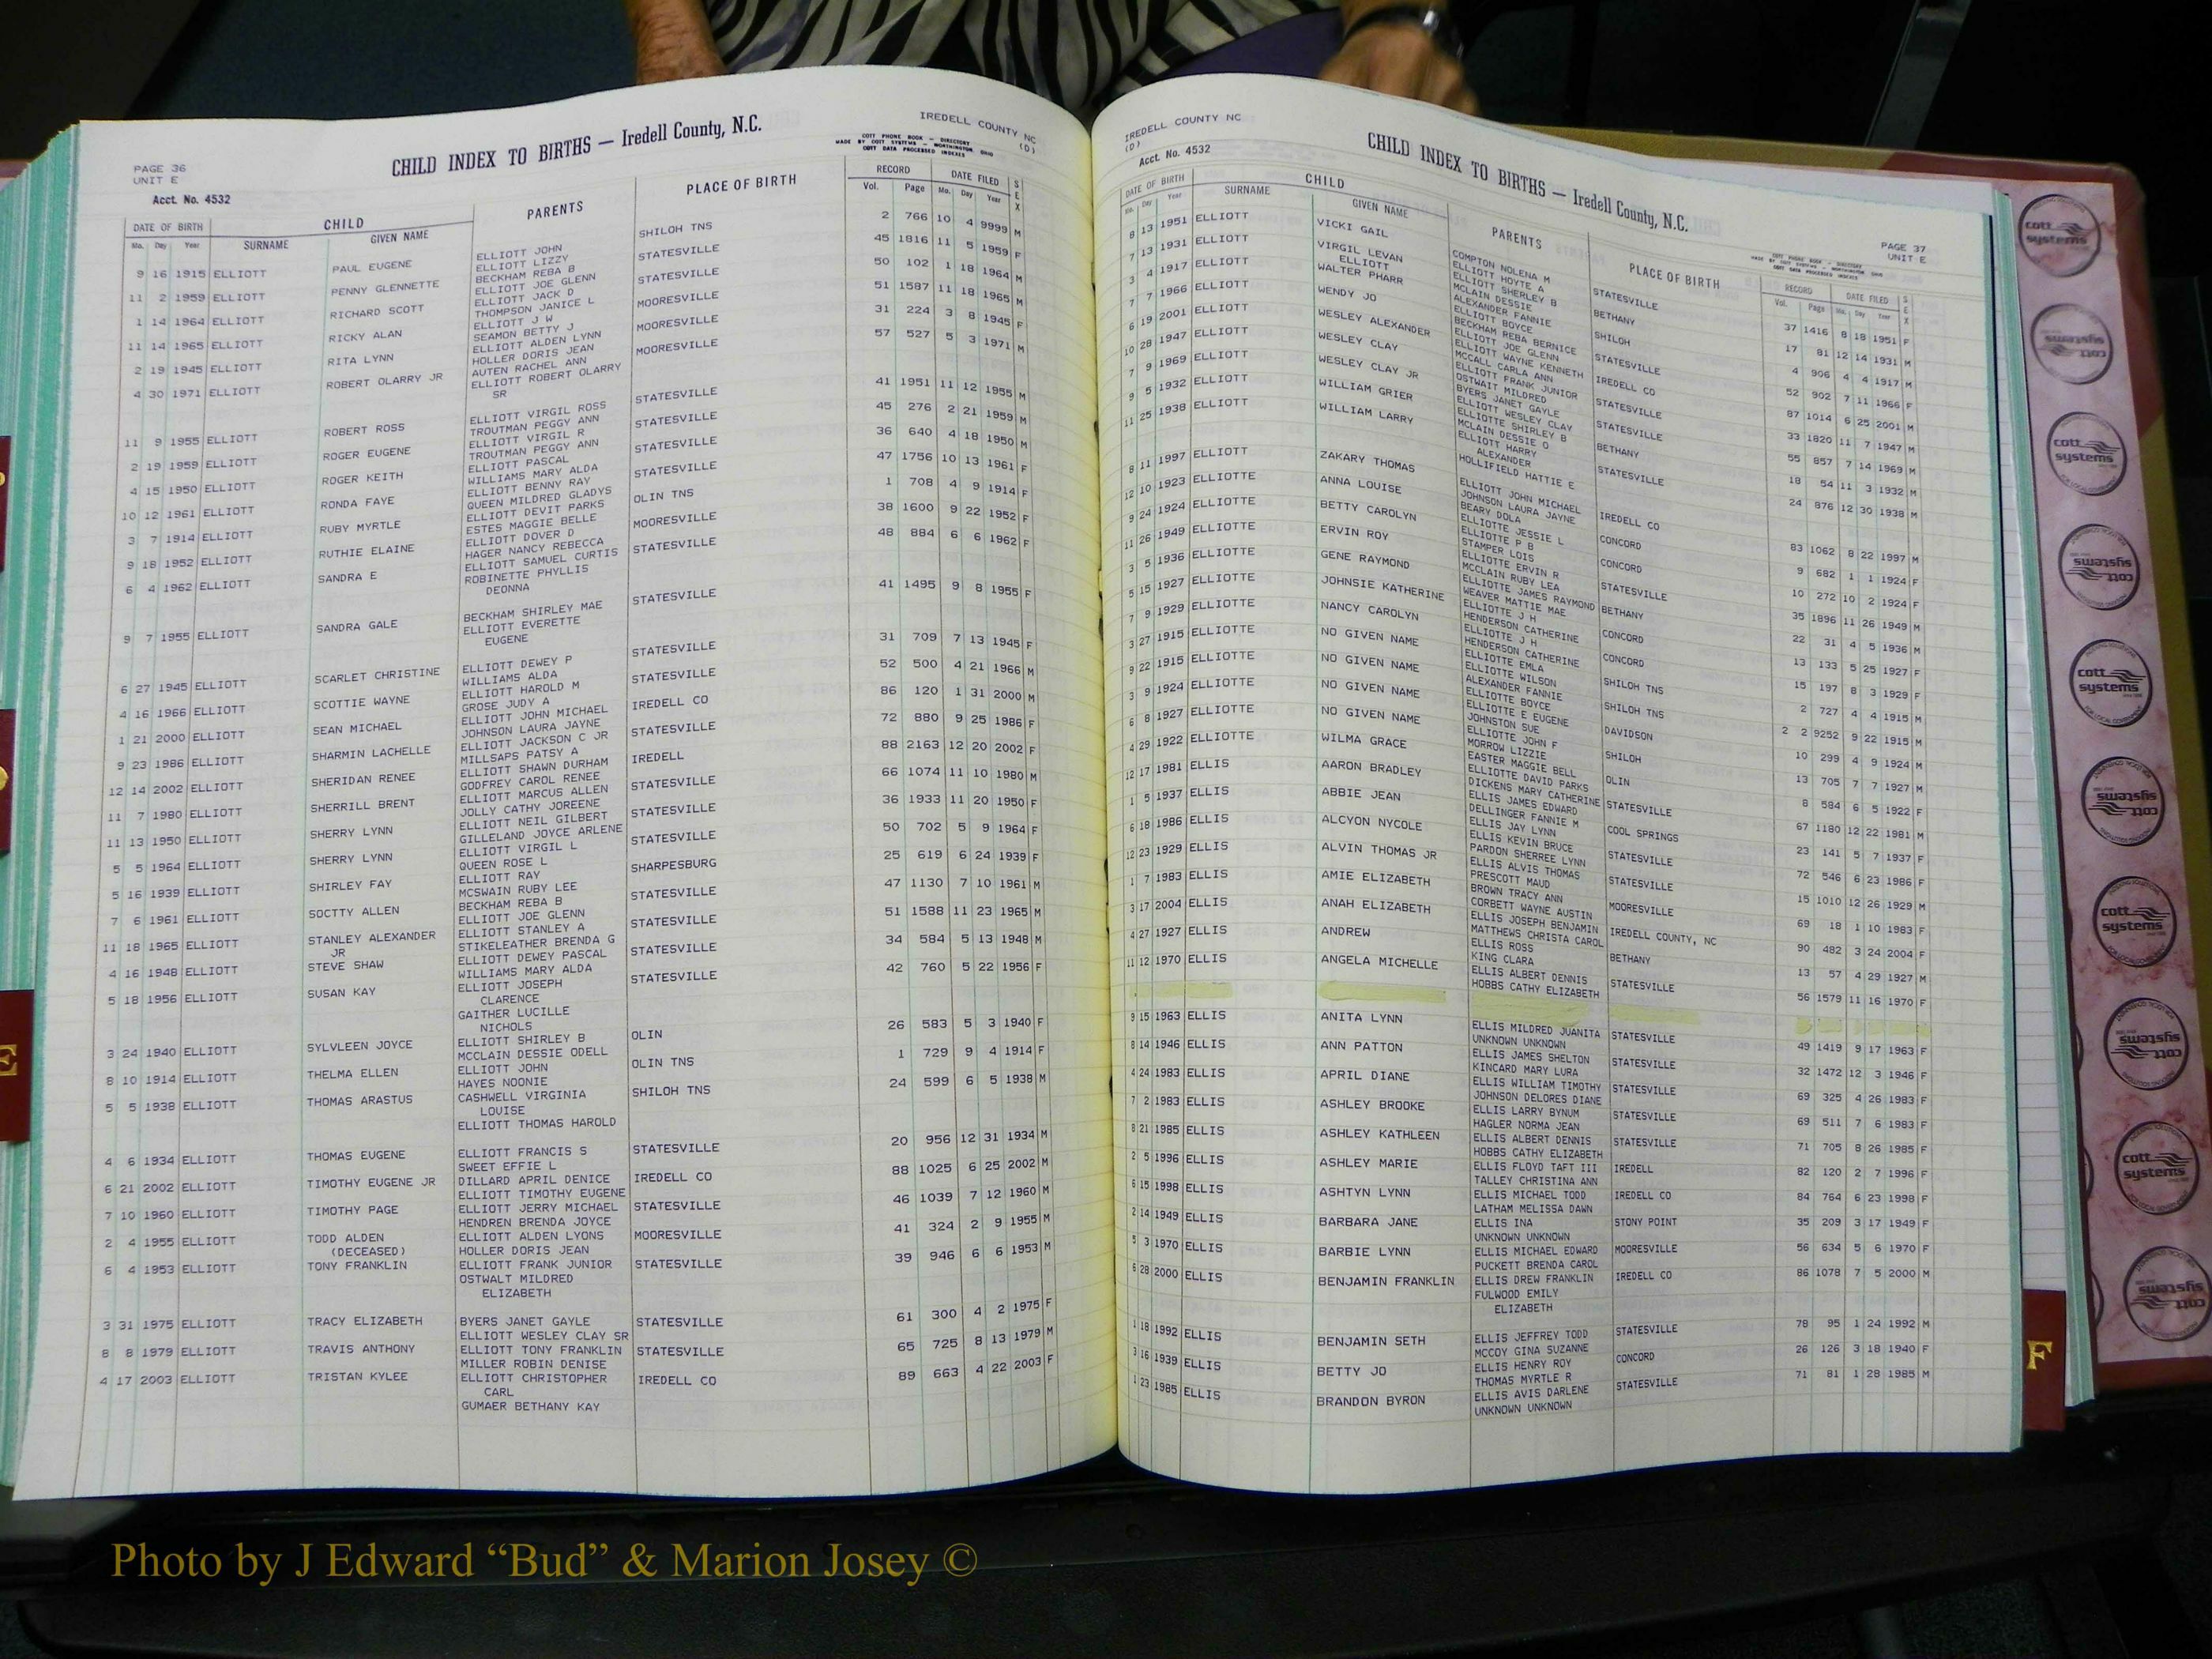 IREDELL COUNTY NC
(D)
CHILD INDEX TO BIRTHS — Iredell County, N.C.
COTT PHONE BOOK — DIRECTORY
MADE BY COTT SYSTEMS — WORTHINGTON, OHIO
COTT DATA PROCESSED INDEXES
PAGE 36
UNIT E
Acct. No. 4532
DATE OF BIRTH CHILD PARENTS PLACE OF BIRTH RECORD DATE FILED SEX
Mo. Day Year SURNAME GIVEN NAME Vol. Page Mo. Day Year
9 16 1915 ELLIOTT PAUL EUGENE ELLIOTT JOHN SHILOH TNS 2 766 10 4 9999 M
ELLIOTT LIZZY
11 2 1959 ELLIOTT PENNY GLENNETTE BECKHAM REBA B STATESVILLE 45 1816 11 5 1959 F
ELLIOTT JOE GLENN
1 14 1964 ELLIOTT RICHARD SCOTT ELLIOTT JACK D STATESVILLE 50 102 1 18 1964 M
THOMPSON JANICE L
11 14 1965 ELLIOTT RICKY ALAN ELLIOTT J W MOORESVILLE 51 1587 11 18 1965 M
SEAMON BETTY J
2 19 1945 ELLIOTT RITA LYNN ELLIOTT ALDEN LYNN MOORESVILLE 31 224 3 8 1945 F
HOLLER DORIS JEAN
4 30 1971 ELLIOTT ROBERT OLARRY JR AUTEN RACHEL ANN MOORESVILLE 57 527 5 3 1971 M
ELLIOTT ROBERT OLARRY
SR
11 9 1955 ELLIOTT ROBERT ROSS ELLIOTT VIRGIL ROSS STATESVILLE 41 1951 11 12 1955 M
TROUTMAN PEGGY ANN
2 19 1959 ELLIOTT ROGER EUGENE ELLIOTT VIRGIL R STATESVILLE 45 276 2 21 1959 M
TROUTMAN PEGGY ANN
4 15 1950 ELLIOTT ROGER KEITH ELLIOTT PASCAL STATESVILLE 36 640 4 18 1950 M
WILLIAMS MARY ALDA
10 12 1961 ELLIOTT RONDA FAYE ELLIOTT BENNY RAY STATESVILLE 47 1756 10 13 1961 F
QUEEN MILDRED GLADYS
3 7 1914 ELLIOTT RUBY MYRTLE ELLIOTT DEVIT PARKS OLIN TNS 1 708 4 9 1914 F
ESTES MAGGIE BELLE
9 18 1952 ELLIOTT RUTHIE ELAINE ELLIOTT DOVER D MOORESVILLE 38 1600 9 22 1952 F
HAGER NANCY REBECCA
6 4 1962 ELLIOTT SANDRA E ELLIOTT SAMUEL CURTIS STATESVILLE 48 884 6 6 1962 F
ROBINETTE PHYLLIS
DEONNA
9 7 1955 ELLIOTT SANDRA GALE BECKHAM SHIRLEY MAE STATESVILLE 41 1495 9 8 1955 F
ELLIOTT EVERETTE
EUGENE
6 27 1945 ELLIOTT SCARLET CHRISTINE ELLIOTT DEWEY P STATESVILLE 31 709 7 13 1945 F
WILLIAMS ALDA
4 16 1966 ELLIOTT SCOTTIE WAYNE ELLIOTT HAROLD M STATESVILLE 52 500 4 21 1966 M
GROSE JUDY A
1 21 2000 ELLIOTT SEAN MICHAEL ELLIOTT JOHN MICHAEL IREDELL CO 86 120 1 31 2000 M
JOHNSON LAURA JAYNE
9 23 1986 ELLIOTT SHARMIN LACHELLE ELLIOTT JACKSON C JR STATESVILLE 72 880 9 25 1986 F
MILLSAPS PATSY A
12 14 2002 ELLIOTT SHERIDAN RENEE ELLIOTT SHAWN DURHAM IREDELL 88 2163 12 20 2002 F
GODFREY CAROL RENEE
11 7 1980 ELLIOTT SHERRILL BRENT ELLIOTT MARCUS ALLEN STATESVILLE 66 1074 11 10 1980 M
JOLLY CATHY JOREENE
11 13 1950 ELLIOTT SHERRY LYNN ELLIOTT NEIL GILBERT STATESVILLE 36 1933 11 20 1950 F
GILLELAND JOYCE ARLENE
5 5 1964 ELLIOTT SHERRY LYNN ELLIOTT VIRGIL L STATESVILLE 50 702 5 9 1964 F
QUEEN ROSE L
5 16 1939 ELLIOTT SHIRLEY FAY ELLIOTT RAY SHARPESBURG 25 619 6 24 1939 F
MCSWAIN RUBY LEE
7 6 1961 ELLIOTT SOCTTY ALLEN BECKHAM REBA B STATESVILLE 47 1130 7 10 1961 M
ELLIOTT JOE GLENN
11 18 1965 ELLIOTT STANLEY ALEXANDER ELLIOTT STANLEY A STATESVILLE 51 1588 11 23 1965 M
JR STIKELEATHER BRENDA G
4 16 1948 ELLIOTT STEVE SHAW ELLIOTT DEWEY PASCAL STATESVILLE 34 584 5 13 1948 M
WILLIAMS MARY ALDA
5 18 1956 ELLIOTT SUSAN KAY ELLIOTT JOSEPH STATESVILLE 42 760 5 22 1956 F
CLARENCE
GAITHER LUCILLE
NICHOLS
3 24 1940 ELLIOTT SYLVLEEN JOYCE ELLIOTT SHIRLEY B OLIN 26 583 5 3 1940 F
MCCLAIN DESSIE ODELL
8 10 1914 ELLIOTT THELMA ELLEN ELLIOTT JOHN OLIN TNS 1 729 9 4 1914 F
HAYES NOONIE
5 5 1938 ELLIOTT THOMAS ARASTUS CASHWELL VIRGINIA SHILOH TNS 24 599 6 5 1938 M
LOUISE
ELLIOTT THOMAS HAROLD
4 6 1934 ELLIOTT THOMAS EUGENE ELLIOTT FRANCIS S STATESVILLE 20 956 12 31 1934 M
SWEET EFFIE L
6 21 2002 ELLIOTT TIMOTHY EUGENE JR DILLARD APRIL DENICE IREDELL CO 88 1025 6 25 2002 M
ELLIOTT TIMOTHY EUGENE
7 10 1960 ELLIOTT TIMOTHY PAGE ELLIOTT JERRY MICHAEL STATESVILLE 46 1039 7 12 1960 M
HENDREN BRENDA JOYCE
2 4 1955 ELLIOTT TODD ALDEN ELLIOTT ALDEN LYONS MOORESVILLE 41 324 2 9 1955 M
(DECEASED) HOLLER DORIS JEAN
6 4 1953 ELLIOTT TONY FRANKLIN ELLIOTT FRANK JUNIOR STATESVILLE 39 946 6 6 1953 M
OSTWALT MILDRED
ELIZABETH
3 31 1975 ELLIOTT TRACY ELIZABETH BYERS JANET GAYLE STATESVILLE 61 300 4 2 1975 F
ELLIOTT WESLEY CLAY SR
8 8 1979 ELLIOTT TRAVIS ANTHONY ELLIOTT TONY FRANKLIN STATESVILLE 65 725 8 13 1979 M
MILLER ROBIN DENISE
4 17 2003 ELLIOTT TRISTAN KYLEE ELLIOTT CHRISTOPHER IREDELL CO 89 663 4 22 2003 F
CARL
GUMAER BETHANY KAY
IREDELL COUNTY NC
(D)
Acct. No. 4532
CHILD INDEX TO BIRTHS — Iredell County, N.C.
PAGE 37
UNIT E
COTT PHONE BOOK — DIRECTORY
MADE BY COTT SYSTEMS — WORTHINGTON, OHIO
COTT DATA PROCESSED INDEXES
DATE OF BIRTH CHILD PARENTS PLACE OF BIRTH RECORD DATE FILED SEX
Mo. Day Year SURNAME GIVEN NAME Vol. Page Mo. Day Year
8 13 1951 ELLIOTT VICKI GAIL COMPTON NOLENA M STATESVILLE 37 1416 8 18 1951 F
ELLIOTT HOYTE A
7 13 1931 ELLIOTT VIRGIL LEVAN ELLIOTT SHERLEY B BETHANY 17 81 12 14 1931 M
ELLIOTT MCLAIN DESSIE
3 4 1917 ELLIOTT WALTER PHARR ALEXANDER FANNIE SHILOH 4 906 4 4 1917 M
ELLIOTT BOYCE
7 7 1966 ELLIOTT WENDY JO BECKHAM REBA BERNICE STATESVILLE 52 902 7 11 1966 F
ELLIOTT JOE GLENN
6 19 2001 ELLIOTT WESLEY ALEXANDER ELLIOTT WAYNE KENNETH IREDELL CO 87 1014 6 25 2001 M
MCCALL CARLA ANN
10 28 1947 ELLIOTT WESLEY CLAY ELLIOTT FRANK JUNIOR STATESVILLE 33 1820 11 7 1947 M
OSTWAIT MILDRED
7 9 1969 ELLIOTT WESLEY CLAY JR BYERS JANET GAYLE STATESVILLE 55 857 7 14 1969 M
ELLIOTT WESLEY CLAY
9 5 1932 ELLIOTT WILLIAM GRIER ELLIOTTE SHIRLEY B BETHANY 18 54 11 3 1932 M
MCLAIN DESSIE O
11 25 1938 ELLIOTT WILLIAM LARRY ELLIOTT HARRY STATESVILLE 24 876 12 30 1938 M
ALEXANDER
HOLLIFIELD HATTIE E
8 11 1997 ELLIOTT ZAKARY THOMAS ELLIOTT JOHN MICHAEL IREDELL CO 83 1062 8 22 1997 M
JOHNSON LAURA JAYNE
12 10 1923 ELLIOTTE ANNA LOUISE BEARY DOLA CONCORD 9 682 1 1 1924 F
ELLIOTTE JESSIE L
9 24 1924 ELLIOTTE BETTY CAROLYN ELLIOTTE P B CONCORD 10 272 10 2 1924 F
STAMPER LOIS
11 26 1949 ELLIOTTE ERVIN ROY ELLIOTTE ERVIN R STATESVILLE 35 1896 11 26 1949 M
MCCLAIN RUBY LEA
3 5 1936 ELLIOTTE GENE RAYMOND ELLIOTTE JAMES RAYMOND BETHANY 22 31 4 5 1936 M
WEAVER MATTIE MAE
5 15 1927 ELLIOTTE JOHNSIE KATHERINE ELLIOTTE J H CONCORD 13 133 5 25 1927 F
HENDERSON CATHERINE
7 9 1929 ELLIOTTE NANCY CAROLYN ELLIOTTE J H CONCORD 15 197 8 3 1929 F
HENDERSON CATHERINE
3 27 1915 ELLIOTTE NO GIVEN NAME ELLIOTTE EMLA SHILOH TNS 2 727 4 4 1915 M
ELLIOTTE WILSON
9 22 1915 ELLIOTTE NO GIVEN NAME ALEXANDER FANNIE SHILOH TNS 2 2 9252 9 22 1915 M
ELLIOTTE BOYCE
3 9 1924 ELLIOTTE NO GIVEN NAME ELLIOTTE E EUGENE DAVIDSON 10 299 4 9 1924 M
JOHNSTON SUE
6 8 1927 ELLIOTTE NO GIVEN NAME ELLIOTTE JOHN F SHILOH 13 705 7 7 1927 M
MORROW LIZZIE
4 29 1922 ELLIOTTE WILMA GRACE EASTER MAGGIE BELL OLIN 8 584 6 5 1922 F
ELLIOTTE DAVID PARKS
12 17 1981 ELLIS AARON BRADLEY DICKENS MARY CATHERINE STATESVILLE 67 1180 12 22 1981 M
ELLIS JAMES EDWARD
1 5 1937 ELLIS ABBIE JEAN DELLINGER FANNIE M COOL SPRINGS 23 141 5 7 1937 F
ELLIS JAY LYNN
6 18 1986 ELLIS ALCYON NYCOLE ELLIS KEVIN BRUCE STATESVILLE 72 546 6 23 1986 F
PARDON SHERREE LYNN
12 23 1929 ELLIS ALVIN THOMAS JR ELLIS ALVIS THOMAS STATESVILLE 15 1010 12 26 1929 M
PRESCOTT MAUD
1 7 1983 ELLIS AMIE ELIZABETH BROWN TRACY ANN MOORESVILLE 69 18 1 10 1983 F
CORBETT WAYNE AUSTIN
3 17 2004 ELLIS ANAH ELIZABETH ELLIS JOSEPH BENJAMIN IREDELL COUNTY, NC 90 482 3 24 2004 F
MATTHEWS CHRISTA CAROL
4 27 1927 ELLIS ANDREW ELLIS ROSS BETHANY 13 57 4 29 1927 M
KING CLARA
11 12 1970 ELLIS ANGELA MICHELLE ELLIS ALBERT DENNIS STATESVILLE 56 1579 11 16 1970 F
HOBBS CATHY ELIZABETH
9 15 1963 ELLIS ANITA LYNN ELLIS MILDRED JUANITA STATESVILLE 49 1419 9 17 1963 F
UNKNOWN UNKNOWN
8 14 1946 ELLIS ANN PATTON ELLIS JAMES SHELTON STATESVILLE 32 1472 12 3 1946 F
KINCARD MARY LURA
4 24 1983 ELLIS APRIL DIANE ELLIS WILLIAM TIMOTHY STATESVILLE 69 325 4 26 1983 F
JOHNSON DELORES DIANE
7 2 1983 ELLIS ASHLEY BROOKE ELLIS LARRY BYNUM STATESVILLE 69 511 7 6 1983 F
HAGLER NORMA JEAN
8 21 1985 ELLIS ASHLEY KATHLEEN ELLIS ALBERT DENNIS STATESVILLE 71 705 8 26 1985 F
HOBBS CATHY ELIZABETH
2 5 1996 ELLIS ASHLEY MARIE ELLIS FLOYD TAFT III IREDELL 82 120 2 7 1996 F
TALLEY CHRISTINA ANN
6 15 1998 ELLIS ASHTYN LYNN ELLIS MICHAEL TODD IREDELL CO 84 764 6 23 1998 F
LATHAM MELISSA DAWN
2 14 1949 ELLIS BARBARA JANE ELLIS INA STONY POINT 35 209 3 17 1949 F
UNKNOWN UNKNOWN
5 3 1970 ELLIS BARBIE LYNN ELLIS MICHAEL EDWARD MOORESVILLE 56 634 5 6 1970 F
PUCKETT BRENDA CAROL
6 28 2000 ELLIS BENJAMIN FRANKLIN ELLIS DREW FRANKLIN IREDELL CO 86 1078 7 5 2000 M
FULWOOD EMILY
ELIZABETH
1 18 1992 ELLIS BENJAMIN SETH ELLIS JEFFREY TODD STATESVILLE 78 95 1 24 1992 M
MCCOY GINA SUZANNE
3 16 1939 ELLIS BETTY JO ELLIS HENRY ROY CONCORD 26 126 3 18 1940 F
THOMAS MYRTLE R
1 23 1985 ELLIS BRANDON BYRON ELLIS AVIS DARLENE STATESVILLE 71 81 1 28 1985 M
UNKNOWN UNKNOWN
E
F
cott systems
cott systems
cott systems
cott systems
cott systems
cott systems
cott systems
cott systems
cott systems
cott systems
Photo by J Edward “Bud” & Marion Josey ©